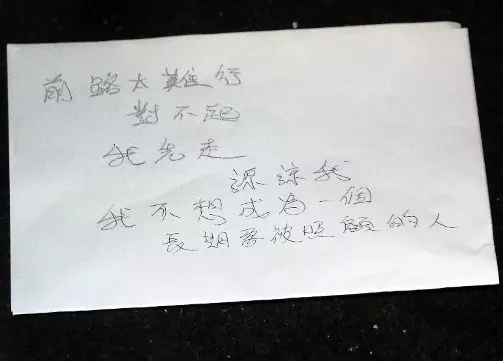 前路太難行
對不起
我先走
諒諒我
我不想成為一個
長期要被照顧的人